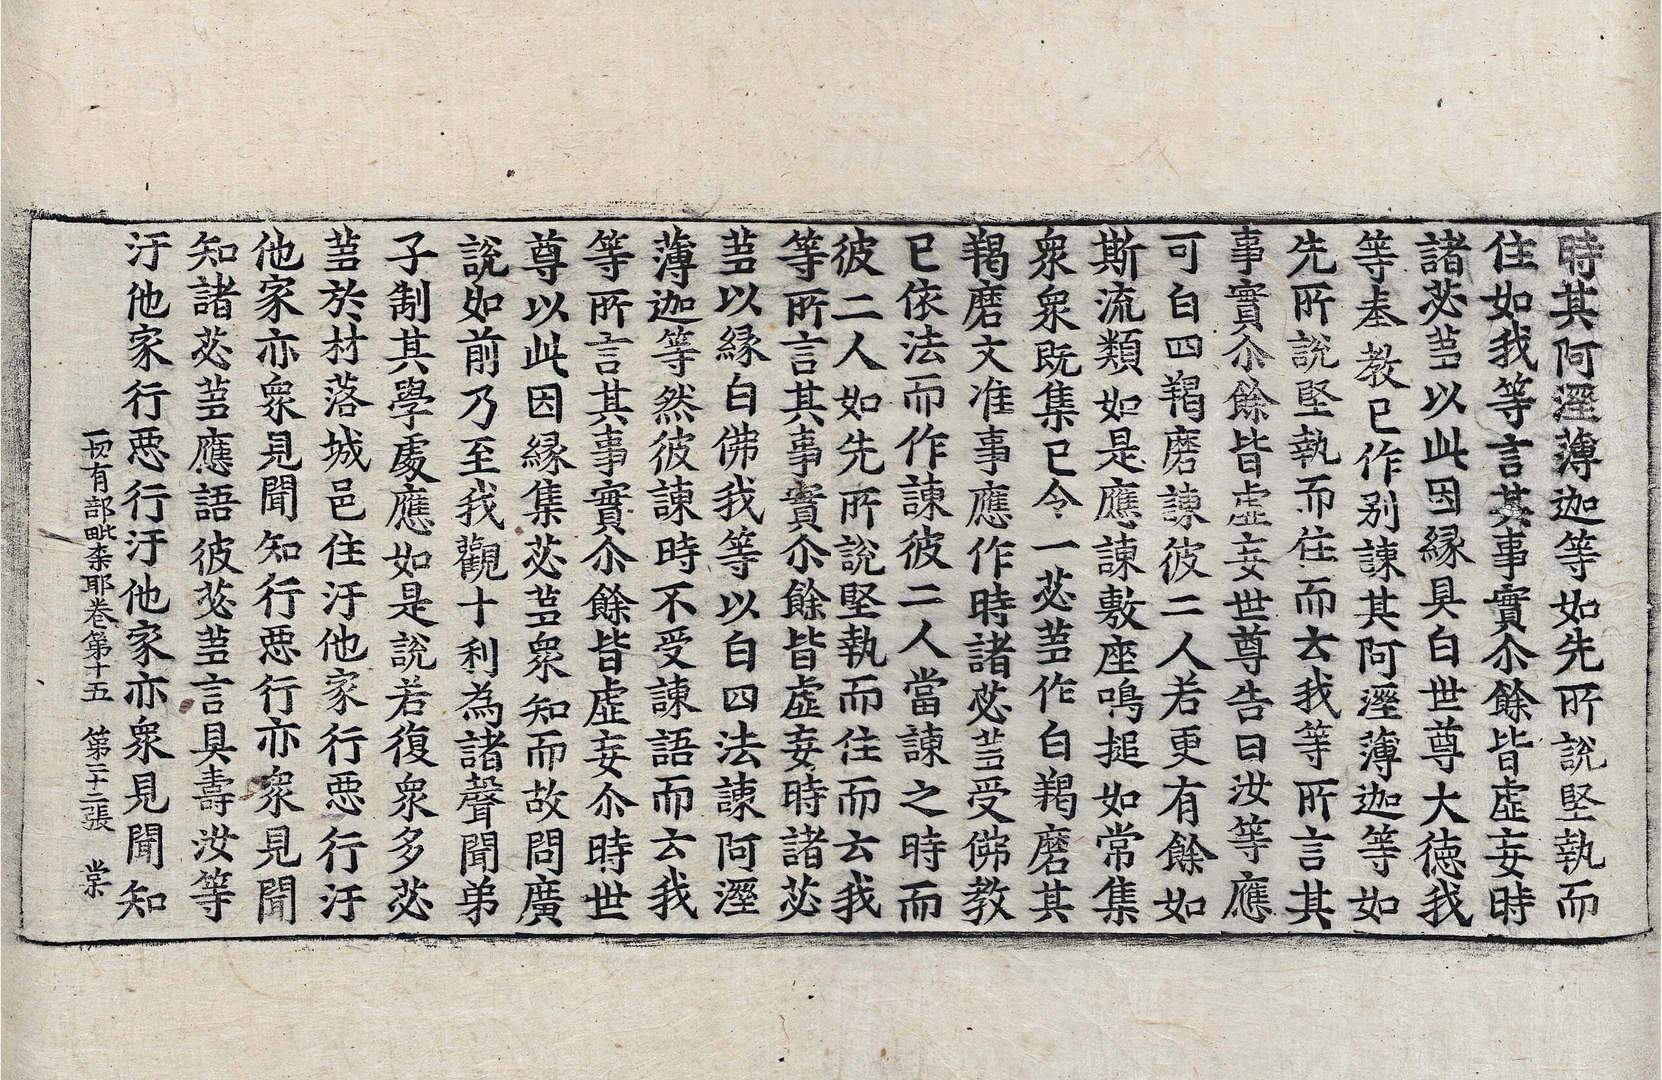 時其阿溼薄迦等如先所說堅執而
住如我等言其事實尒餘皆虛妄時
諸苾蒭以此因緣具白世尊大德我
等奉教已作别諫其阿溼薄迦等如
先所說堅執而住而云我等所言其
事實尒餘皆虛妄世尊告曰汝等應
可白四羯磨諫彼二人若更有餘如
斯流類如是應諫敷座鳴搥如常集
衆衆旣集已令一苾蒭作白羯磨其
羯磨文准事應作時諸苾蒭受佛教
已依法而作諫彼二人當諫之時而
彼二人如先所說堅執而住而云我
等所言其事實尒餘皆虛妄時諸苾
蒭以緣白佛我等以白四法諫阿溼
薄迦等然彼諫時不受諫語而云我
等所言其事實尒餘皆虛妄尒時世
尊以此因緣集苾蒭衆知而故問廣
說如前乃至我觀十利為諸聲聞弟
子制其學處應如是說若復衆多苾
蒭於村落城邑住汙他家行惡行汙
他家亦衆見聞知行惡行亦衆見聞
知諸苾蒭應語彼苾蒭言具壽汝等
汙他家行惡行汙他家亦衆見聞知
一切有部毗柰耶卷第十五 第二十二張 棠